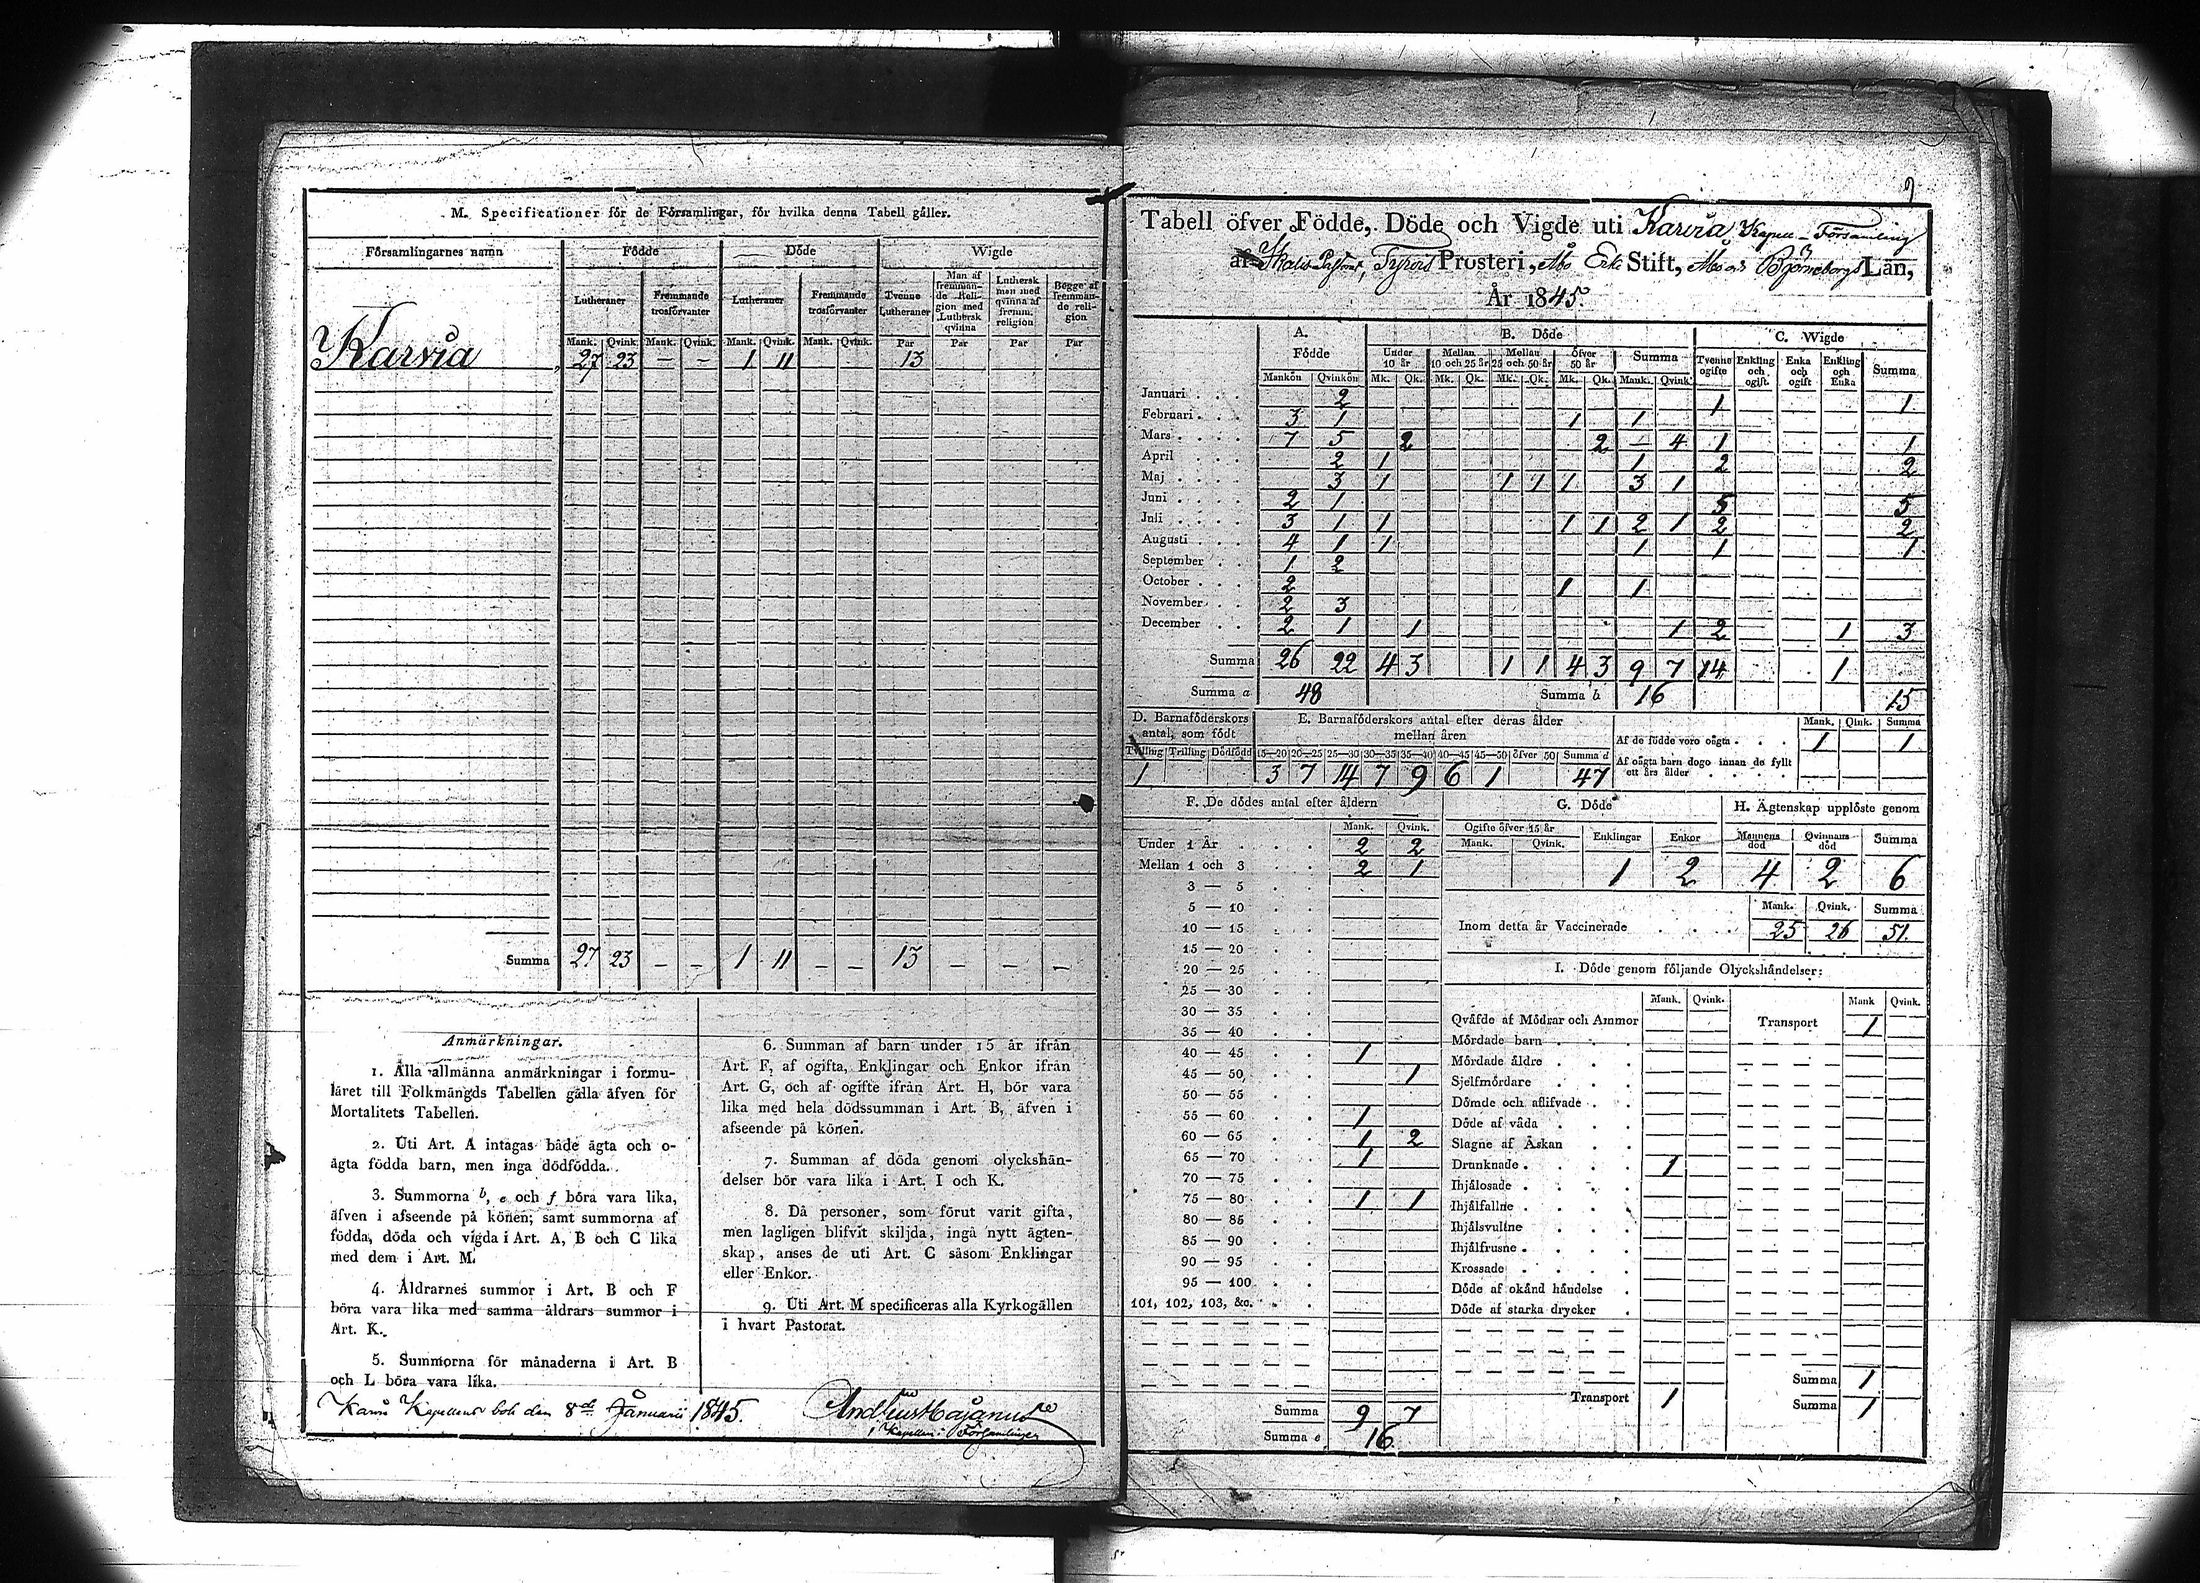 M. Specificationer för de Församlingar, för hvilka denna Tabell gäller.
Församlingarnes namn | Födde | Döde | Wigde
Lutheraner | Fremmande trosförvanter | Lutheraner | Fremmande trosförvanter | Tvenne Lutheraner | Man af fremmande Religion med Luthersk qvinna | Luthersk man med qvinna af fremm. religion | Begge af fremmande religion
Mank. Qvink. Mank. Qvink. Mank. Qvink. Mank. Qvink. Par Par Par Par
Karvia 27 23 – – 1 11 13
Summa 27 23 – – 1 11 – – 13 – – –
Anmärkningar.
1. Alla allmänna anmärkningar i formu-
läret till Folkmängds Tabellen gälla äfven för
Mortalitets Tabellen.
2. Uti Art. A intagas både ägta och o-
ägta födda barn, men inga dödfödda.
3. Summorna b, e och f böra vara lika,
äfven i afseende på könen; samt summorna af
födda, döda och vigda i Art. A, B och C lika
med dem i Art. M.
4. Åldrarnes summor i Art. B och F
böra vara lika med samma åldrars summor i
Art. K.
5. Summorna för månaderna i Art. B
och L böra vara lika.
6. Summan af barn under 15 år ifrån
Art. F, af ogifta, Enklingar och Enkor ifrån
Art. G, och af ogifte ifrån Art. H, bör vara
lika med hela dödssumman i Art. B, äfven i
afseende på könen.
7. Summan af döda genom olyckshän-
delser bör vara lika i Art. I och K.
8. Då personer, som förut varit gifta,
men lagligen blifvit skiljda, ingå nytt ägten-
skap, anses de uti Art. C såsom Enklingar
eller Enkor.
9. Uti Art. M specificeras alla Kyrkogällen
i hvart Pastorat.
den 8de Januarii 1845.
Tabell öfver Födde, Döde och Vigde uti Karvia Kapell-Församling
af Pastorat, Prosteri, Åbo Erke Stift, Åbo och Björneborgs Län,
År 1845.
A. Födde | B. Döde | C. Wigde
Under 10 år | Mellan 10 och 25 år | Mellan 25 och 50 år | Öfver 50 år | Summa | Tvenne ogifte | Enkling och ogift. | Enka och ogift | Enkling och Enka | Summa
Mankön Qvinkön Mk. Qk. Mk. Qk. Mk. Qk. Mk. Qk. Mank. Qvink.
Januari . . . 2 1 1
Februari . . . 3 1 1 1
Mars . . . . 7 5 2 2 – 4 1 1
April . . . 2 1 1 2 2
Maj . . . . 3 1 1 1 1 3 1
Juni . . . . 2 1 5 5
Juli . . . . 3 1 1 1 1 2 1 2 2
Augusti . . . 4 1 1 1 1 1
September . . 1 2
October . . . 2 1 1
November . . 2 3
December . . 2 1 1 1 2 1 3
Summa 26 22 4 3 1 1 4 3 9 7 14 1
Summa a 48 Summa b 16 15
D. Barnaföderskors antal, som födt
Tvilling Trilling Dödfödd
1
E. Barnaföderskors antal efter deras ålder mellan åren
15—20 20—25 25—30 30—35 35—40 40—45 45—50 öfver 50 Summa d
3 7 14 7 9 6 1 47
Mank. Qink. Summa
Af de födde voro oägta . . . 1 1
Af oägta barn dogo innan de fyllt
ett års ålder . . . .
F. De dödes antal efter åldern
Mank. Qvink.
Under 1 År . . . 2 2
Mellan 1 och 3 . . 2 1
3 — 5 . .
5 — 10 . .
10 — 15 . .
15 — 20 . .
20 — 25 . .
25 — 30 . .
30 — 35 . .
35 — 40 . .
40 — 45 . . 1
45 — 50 . . 1
50 — 55 . .
55 — 60 . . 1
60 — 65 . . 1 2
65 — 70 . . 1
70 — 75 . .
75 — 80 . . 1 1
80 — 85 . .
85 — 90 . .
90 — 95 . .
95 — 100 . .
101, 102, 103, &c. . .
Summa 9 7
Summa e 16
G. Döde
Ogifte öfver 15 år | Enklingar | Enkor
Mank. Qvink.
1 2
H. Ägtenskap upplöste genom
Mannens död | Qvinnans död | Summa
4 2 6
Mank. Qvink. Summa
Inom detta år Vaccinerade . . . . 25 26 51.
I. Döde genom följande Olyckshändelser:
Mank. Qvink. Mank Qvink.
Qväfde af Mödrar och Ammor
Transport 1
Mördade barn . . .
Mördade äldre . . .
Sjelfmördare . . .
Dömde och aflifvade . .
Döde af våda . . .
Slagne af Åskan . . .
Drunknade . . . . 1
Ihjälosade . . . .
Ihjälfallne . . . .
Ihjälsvultne . . .
Ihjälfrusne . . . .
Krossade . . . .
Döde af okänd händelse .
Döde af starka drycker .
Transport 1
Summa 1
Summa 1